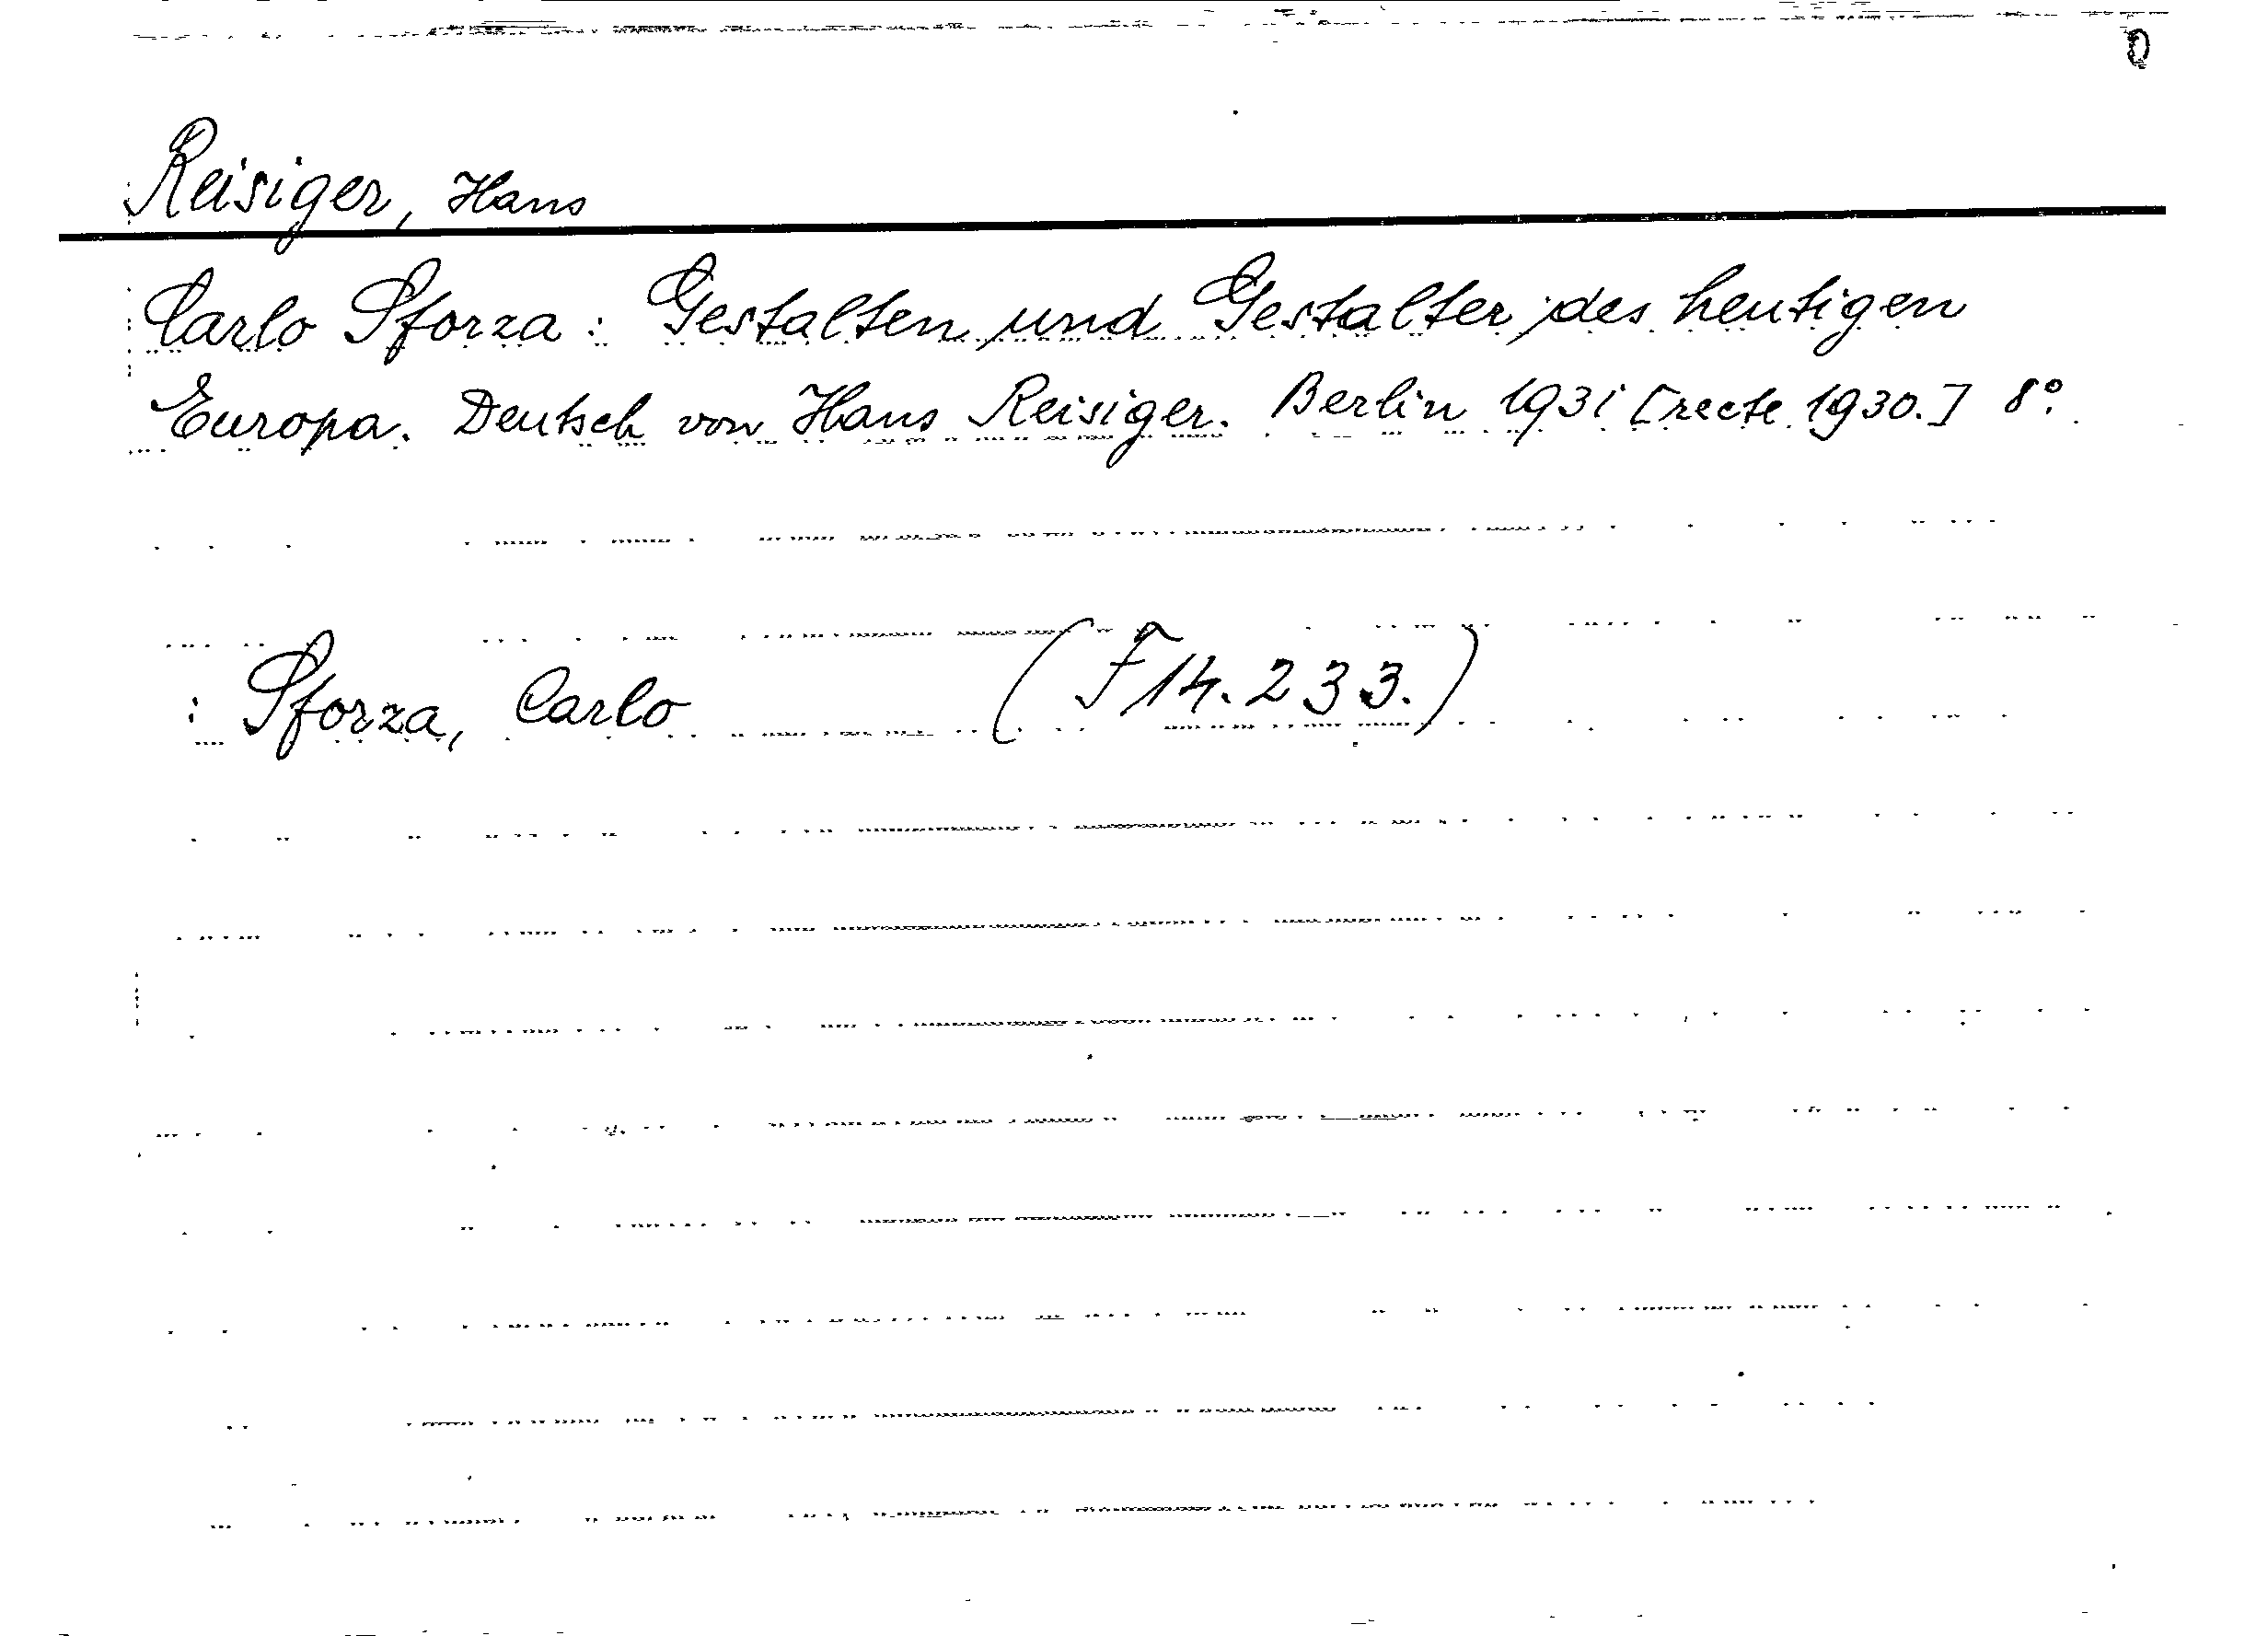 Reisiger, Hans
Carlo Sforza: Gestalten und Gestalter des heutigen
Europa. Deutsch von Hans Reisiger. Berlin 1931 [recte 1930.] 8°.
: Sforza, Carlo (F 14.233.)